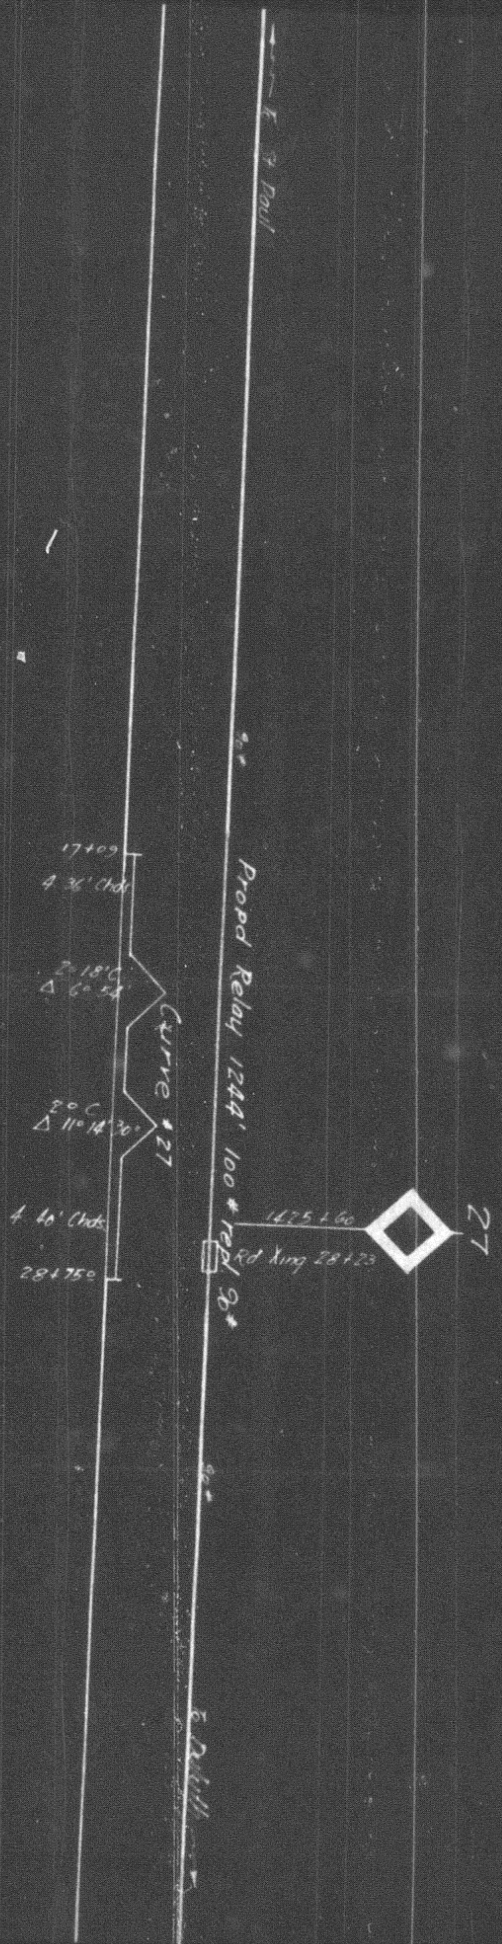 To St Paul
90#
17+09
4 36' Chds
2° 18' C
Δ 6° 54'
Curve #27
2° C
Δ 11° 14' 30"
4 40' Chds
28+75⁰
Propd Relay 1244' 100# repl 90#
1425+60
27
Rd Xing 28+23
90#
To Duluth